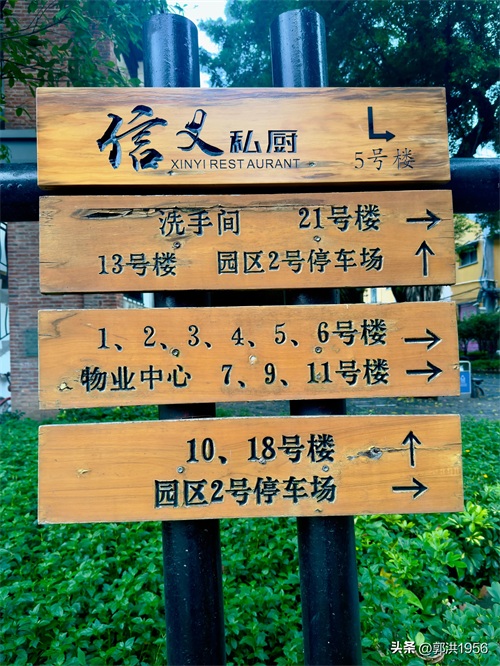 信义私厨
XINYI RESTAURANT
5号楼
洗手间 21号楼 →
13号楼 园区2号停车场 ↑
1、2、3、4、5、6号楼 →
物业中心 7、9、11号楼 →
10、18号楼 ↑
园区2号停车场 →
头条 @郭洪1956